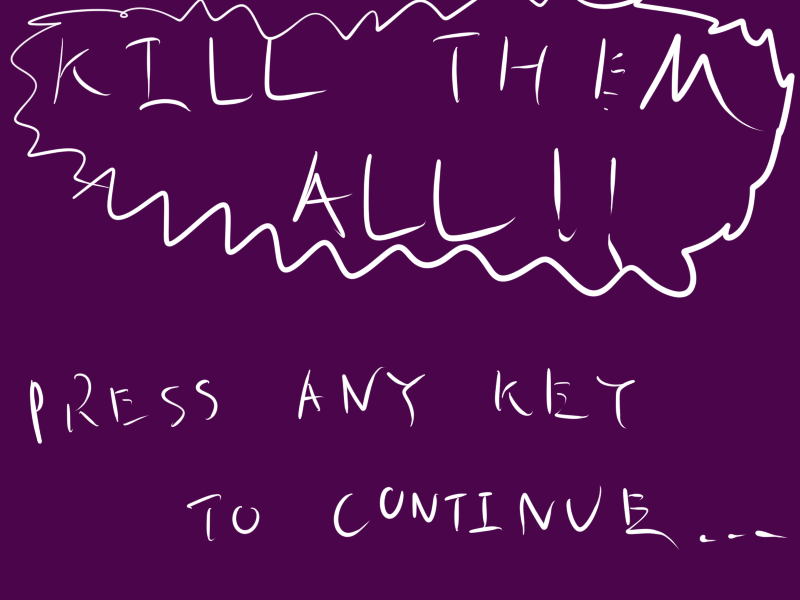 KILL THEM
ALL!!
PRESS ANY KEY
TO CONTINUE...